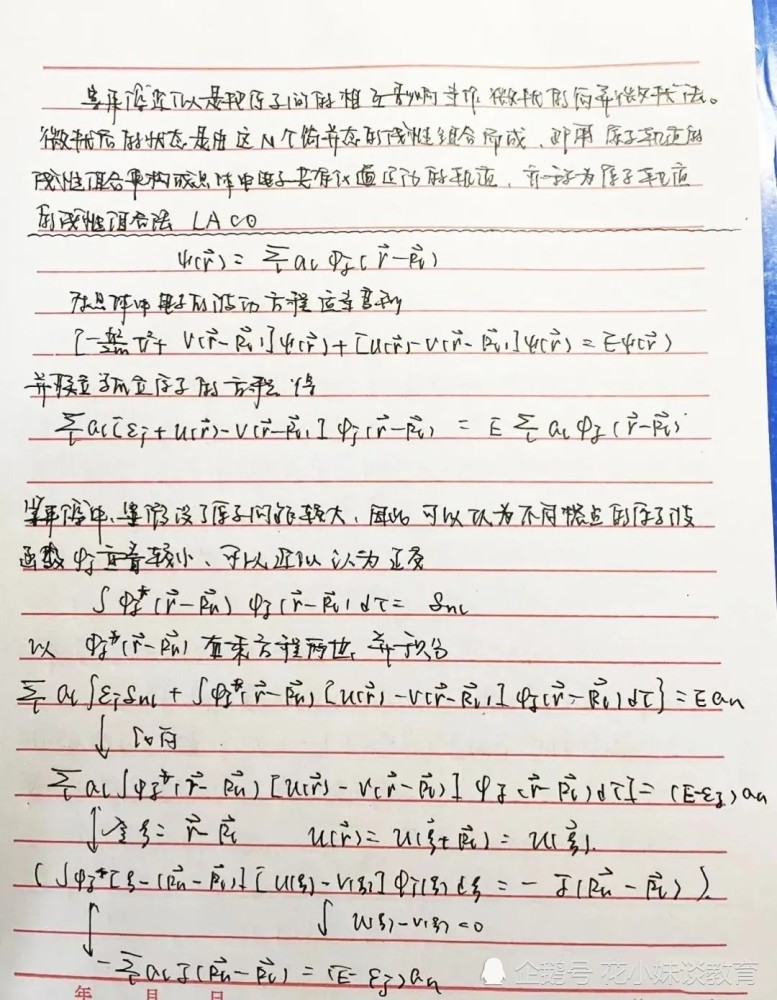 紧束缚近似是把原子间的相互影响当作微扰的简并微扰法。
微扰后的状态是由这N个简并态的线性组合而成,即用原子轨道的
线性组合来构成晶体中电子共有化运动的轨道,并称为原子轨道
的线性组合法 LACO
ψ(r⃗) = Σ_l a_l φ_j(r⃗-R⃗_l)
在晶体中电子的波动方程
[-ħ²/2m ∇² + V(r⃗-R⃗_l)]ψ(r⃗) + [U(r⃗)-V(r⃗-R⃗_l)]ψ(r⃗) = Eψ(r⃗)
并联立孤立原子的方程 得
Σ_l a_l[ε_j + U(r⃗) - V(r⃗-R⃗_l)] φ_j(r⃗-R⃗_l) = E Σ_l a_l φ_j(r⃗-R⃗_l)
紧束缚中,紧假设了原子间距较大,因此可以认为不同格点的原子波
函数φ_j重叠较小,可以近似认为正交
∫φ_j*(r⃗-R⃗_n) φ_j(r⃗-R⃗_l)dτ = δ_nl
以 φ_j*(r⃗-R⃗_n) 左乘方程两边,并积分
Σ_l a_l{ε_j δ_nl + ∫φ_j*(r⃗-R⃗_n)[U(r⃗)-V(r⃗-R⃗_l)]φ_j(r⃗-R⃗_l)dτ} = E a_n
↓化简
Σ_l a_l{∫φ_j*(r⃗-R⃗_n)[U(r⃗)-V(r⃗-R⃗_l)]φ_j(r⃗-R⃗_l)dτ} = (E-ε_j)a_n
↓令ξ = r⃗-R⃗_l U(r⃗) = U(ξ⃗+R⃗_l) = U(ξ⃗).
(∫φ_j*[ξ-(R⃗_n-R⃗_l)][U(ξ)-V(ξ)]φ_j(ξ)dξ = -J(R⃗_n-R⃗_l)).
∫ U(ξ)-V(ξ)<0
-Σ_l a_l J(R⃗_n-R⃗_l) = (E-ε_j)a_n
年 月 日
企鹅号 花小妹谈教育